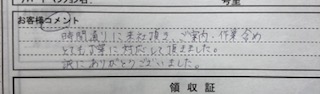 お客様コメント
時間通りに来社頂き、ご案内・作業含め
とても丁寧に対応して頂きました。
誠にありがとうございました。
領収証